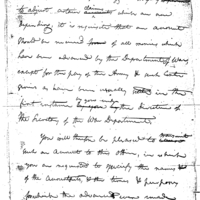 to adjust certain claims which are now
depending, it is requisite that an account
should be rendered of all monies which
have been advanced by the Department of War,
except for the pay of the Army, & such
as have been usually in the
first instance by the direction of
the Secretary of the War Department.
You will be pleased to
such an account to this office, in which
you are requested to specify the names
of the Accountable, & the times & purposes
for which the advances were made